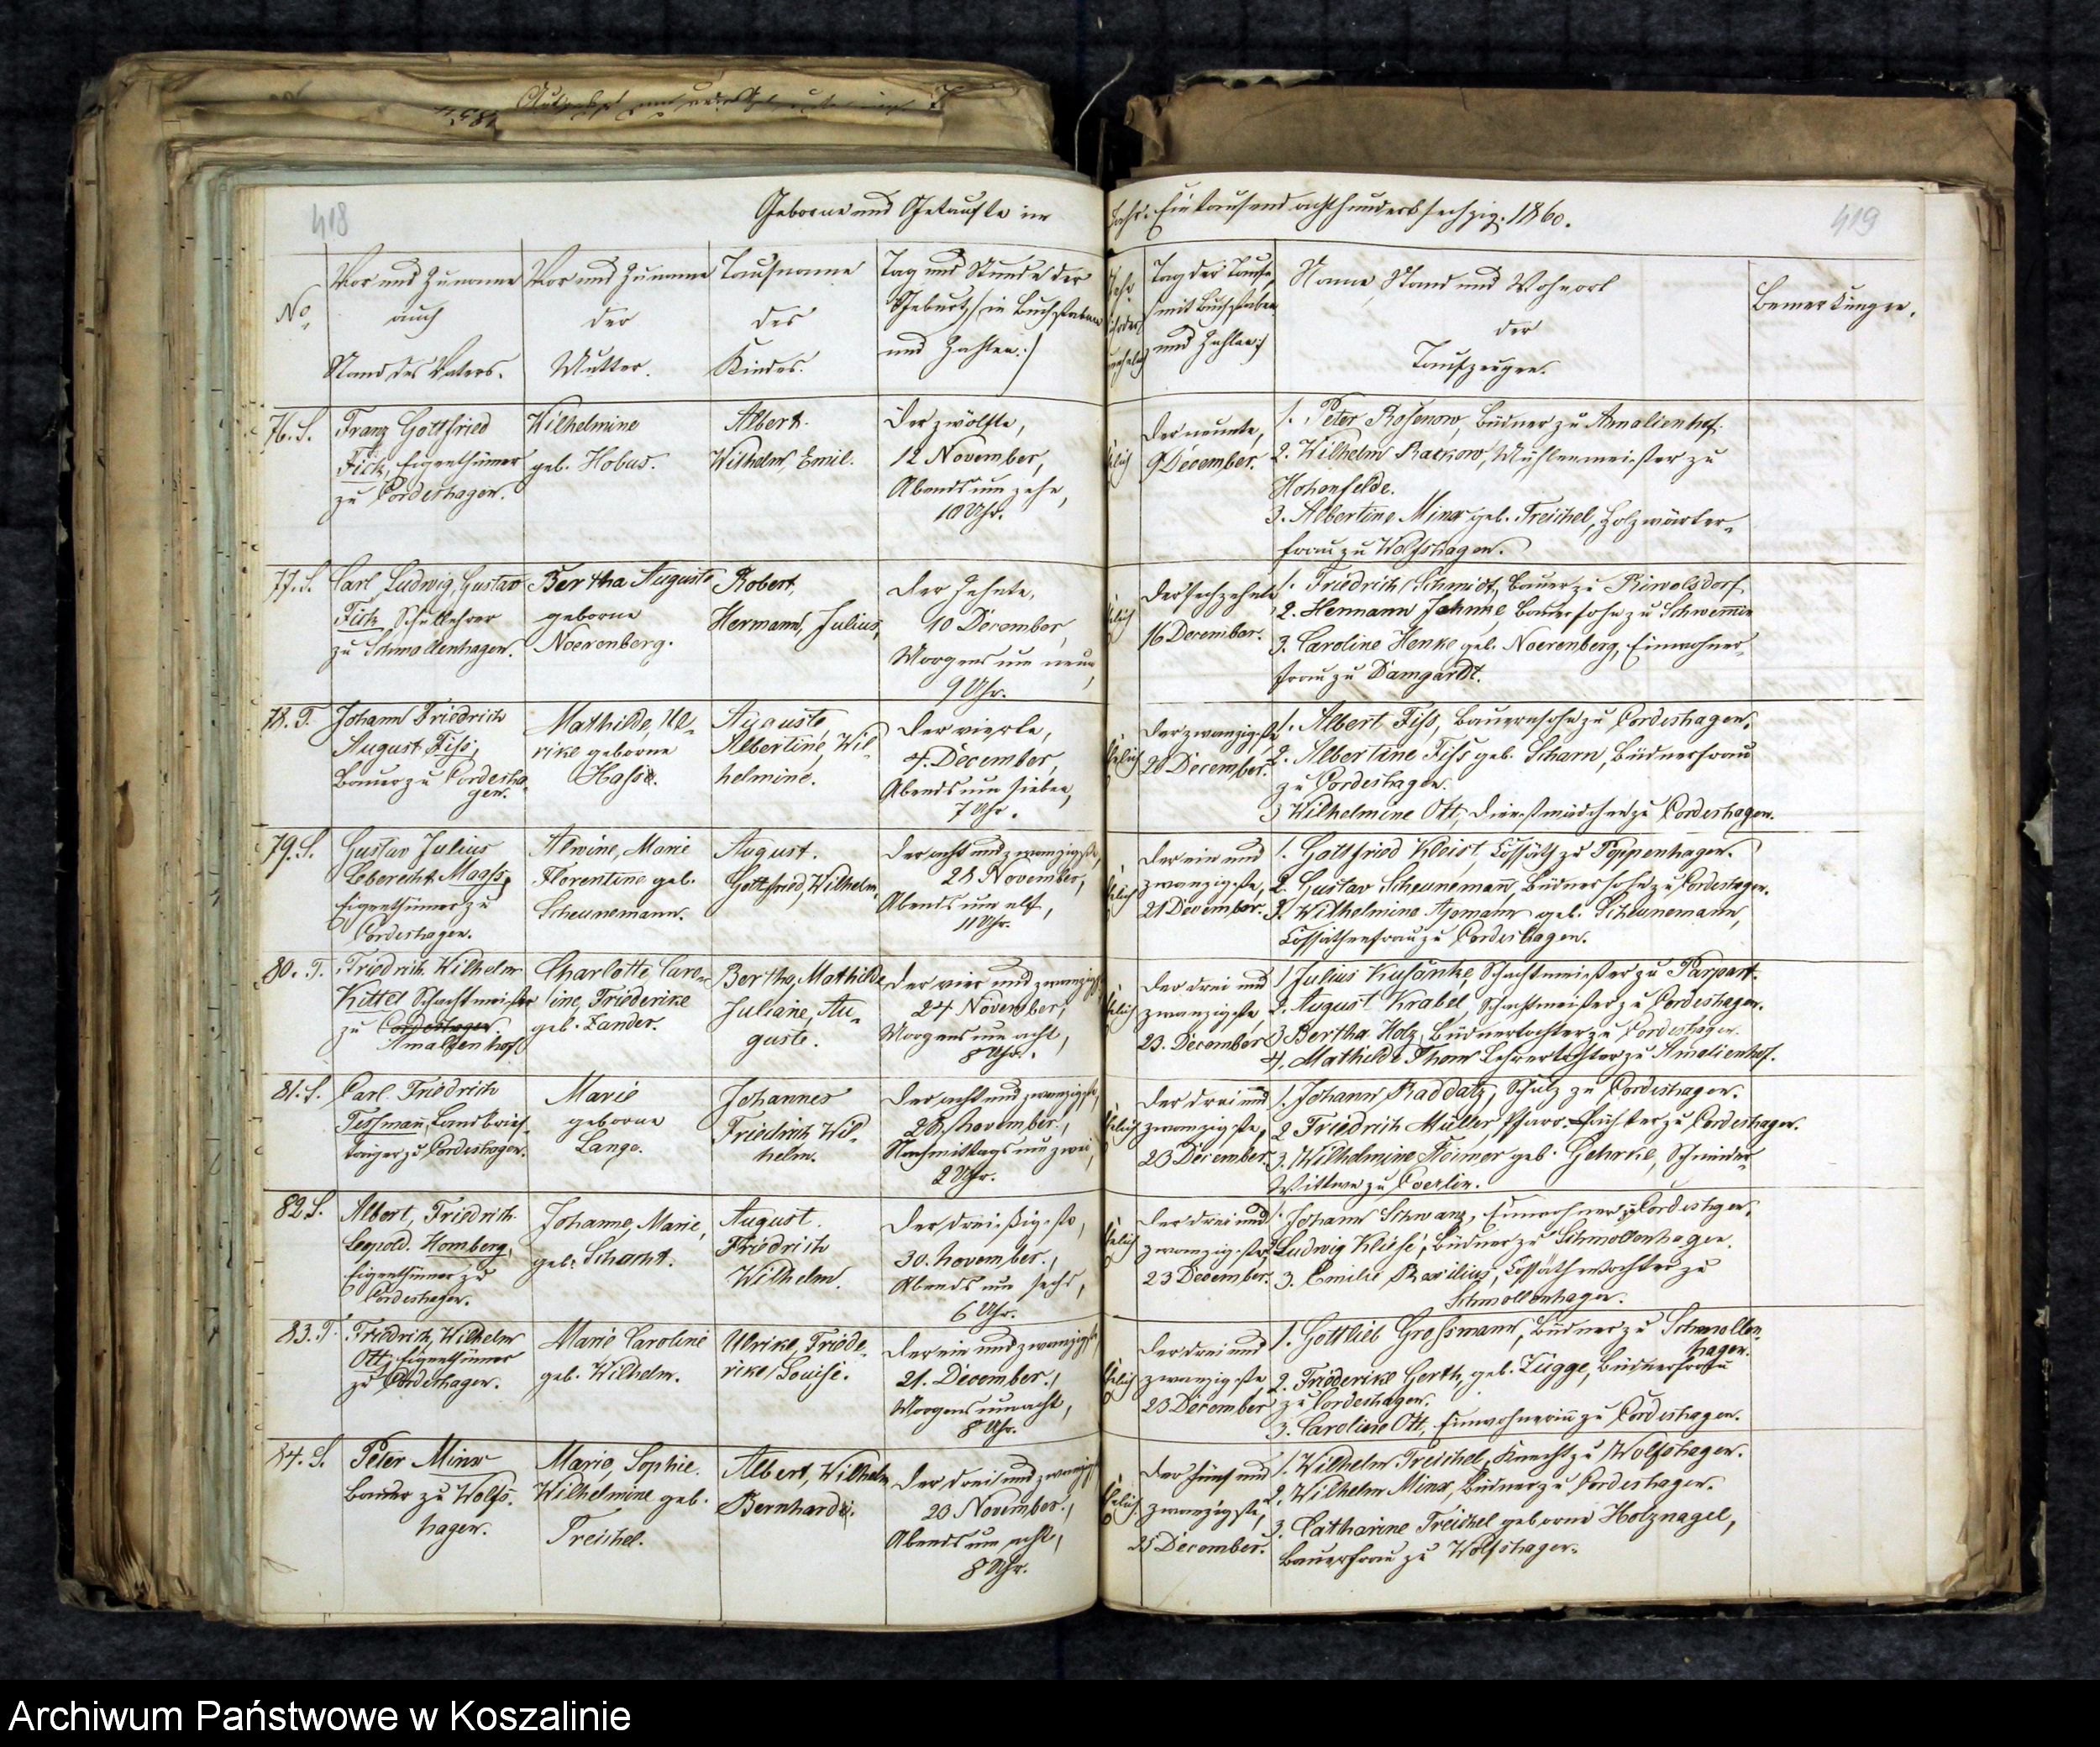 418
Geborne und Getaufte im
No
Vor und Zuname
auch
Stand des Vaters.
Vor und Zuname
der
Mutter.
Taufname
des
Kindes.
Tag und Stunde der
Geburt, (in Buchstaben
und Zahlen.)
76. S.
Franz Gottfried
Fick, Eigenthümer
zu Cordeshagen.
Wilhelmine
geb. Hobus.
Albert.
Wilhelm, Emil.
Der zwölfte,
12 November,
Abends um zehn,
10 Uhr.
77. S.
Carl, Ludwig, Gustav
Fick, Schullehrer
zu Schmollenhagen.
Bertha Auguste
geborne
Noerenberg.
Robert,
Hermann, Julius,
Der zehnte,
10 December,
Morgens um neun,
9 Uhr.
78. T.
Johann Friedrich
August Fiss,
Bauer zu Cordesha
gen.
Mathilde, Ul-
rike geborne
Hasse.
Auguste,
Albertine, Wil
helmine.
Der vierte,
4. December,
Abends um sieben,
7 Uhr.
79. S.
Gustav Julius
Leberecht Maass,
Eigenthümer zu
Cordeshagen.
Alwine, Marie
Florentine geb.
Scheunemann.
August.
Gottfried, Wilhelm.
Der acht und zwanzigste,
28 November,
Abends um elf,
11 Uhr.
80. T.
Friedrich Wilhelm
Kittel Schachtmeister
zu Cordeshagen.
Amalienhof
Charlotte Caro-
line, Friederike
geb. Zander.
Bertha, Mathilde
Juliane, Au-
guste.
Der vier und zwanzigste
24 November,
Morgens um acht,
8 Uhr.
81. S.
Carl Friedrich
Tessmann, Landbrief-
träger zu Cordeshagen.
Marie
geborne
Lange.
Johannes
Friedrich Wil-
helm.
Der acht und zwanzigste,
28 November,
Nachmittags um zwei,
2 Uhr.
82 S.
Albert, Friedrich
Leopold. Homberg,
Eigenthümer zu
Cordeshagen.
Johanne, Marie,
geb. Schacht.
August.
Friedrich
Wilhelm.
Der dreißigste,
30. November,
Abends um sechs,
6 Uhr.
83. T.
Friedrich, Wilhelm
Ott, Eigenthümer
zu Cordeshagen.
Marie Caroline
geb. Wilhelm.
Ulrike, Friede-
rike, Louise.
Der ein und zwanzigste,
21. December,
Morgens um acht,
8 Uhr.
84. S.
Peter Minx
Bauer zu Wolfs-
hagen.
Marie, Sophie.
Wilhelmine geb.
Treichel.
Albert, Wilhelm
Bernhard.
Der drei und zwanzigste
23 November,
Abends um acht,
8 Uhr.
Jahr: Eintausend achthundert sechzig. 1860.
419
Tag der Taufe,
(mit Buchstaben
und Zahlen)
Name, Stand und Wohnort
der
Taufzeugen.
Bemerkungen.
Der neunte,
9 December.
1. Peter Rosenow, Büdner zu Amalienhof.
2. Wilhelm Rackow, Mühlenmeister zu
Hohenfelde.
3. Albertine Minx geb. Treichel, Holzwärter-
frau zu Wolfshagen.
Der sechzehnte
16 December.
1. Friedrich Schmidt, Bauer zu
2. Hermann Jahnke, Bauersohn zu Schwemmin
3. Caroline Henke geb. Noerenberg, Einwohner-
frau zu Damgardt.
Der zwanzigste
20 December.
1. Albert Fiss, Bauernsohn zu Cordeshagen.
2. Albertine Fiss geb. Scharn, Büdnerfrau
zu Cordeshagen.
3 Wilhelmine Ott, Dienstmädchen zu Cordeshagen.
Der ein und
zwanzigste,
21 December.
1. Gottfried Kleist, Cossäth zu Poppenhagen.
2. Gustav Scheunemann, Büdnersohn zu Cordeshagen.
3. Wilhelmine geb. Scheunemann,
Cossäthenfrau zu Cordeshagen.
Der drei und
zwanzigste
23. December
1 Julius Kusanke, Schachtmeister zu Parpart.
2. August Krabel, Schachtmeister zu Cordeshagen.
3 Bertha Holz, Büdnertochter zu Cordeshagen.
4. Mathilde Thom Lehrertochter zu Amalienhof.
Der drei und
zwanzigste,
23 December.
1. Johann Raddatz, Schulz zu Cordeshagen.
2 Friedrich Müller, Pfarr-Pächter zu Cordeshagen.
3. Wilhelmine geb. Gehrke, Schneider-
Wittwe zu Coerlin.
Der drei und
zwanzigste,
23 December.
1. Johann Schwanz, Einwohner zu Cordeshagen,
2. Ludwig Kliese, Büdner zu Schmollenhagen.
3. Emilie Cossäthentochter zu
Schmollenhagen.
Der drei und
zwanzigste
23 December
1. Gottlieb Grossmann, Büdner zu Schmollen-
hagen.
2. Friederike Gerth, geb. Zügge, Büdnerfrau
zu Cordeshagen.
3. Caroline Ott, Einwohnerin zu Cordeshagen.
Der fünf und
zwanzigste,
25 December.
1. Wilhelm Treichel, Knecht zu Wolfshagen.
2. Wilhelm Minx, Büdner zu Cordeshagen.
3. Catharine Treichel geborne Holznagel,
Bauerfrau zu Wolfshagen.
Archiwum Państwowe w Koszalinie